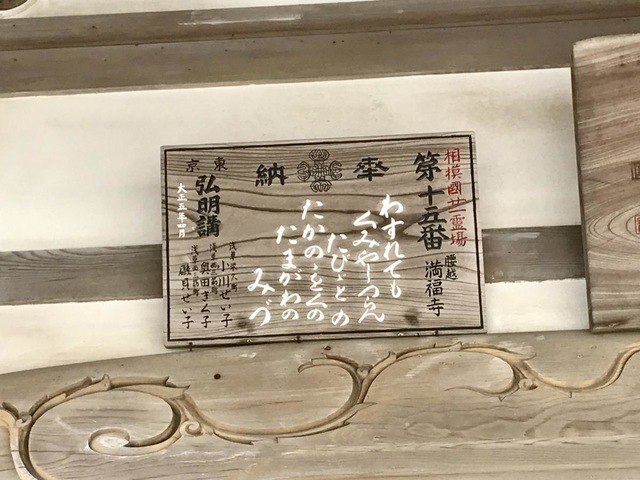 相模國廿一霊場
第十五番
腰越
満福寺
奉納
わすれても
くみやしつらん
たびゞとの
たかのゝをくの
たまがわの
みづ
東京
弘明講
大正五年四月
小川せい子
奥田きく子
磯貝せい子